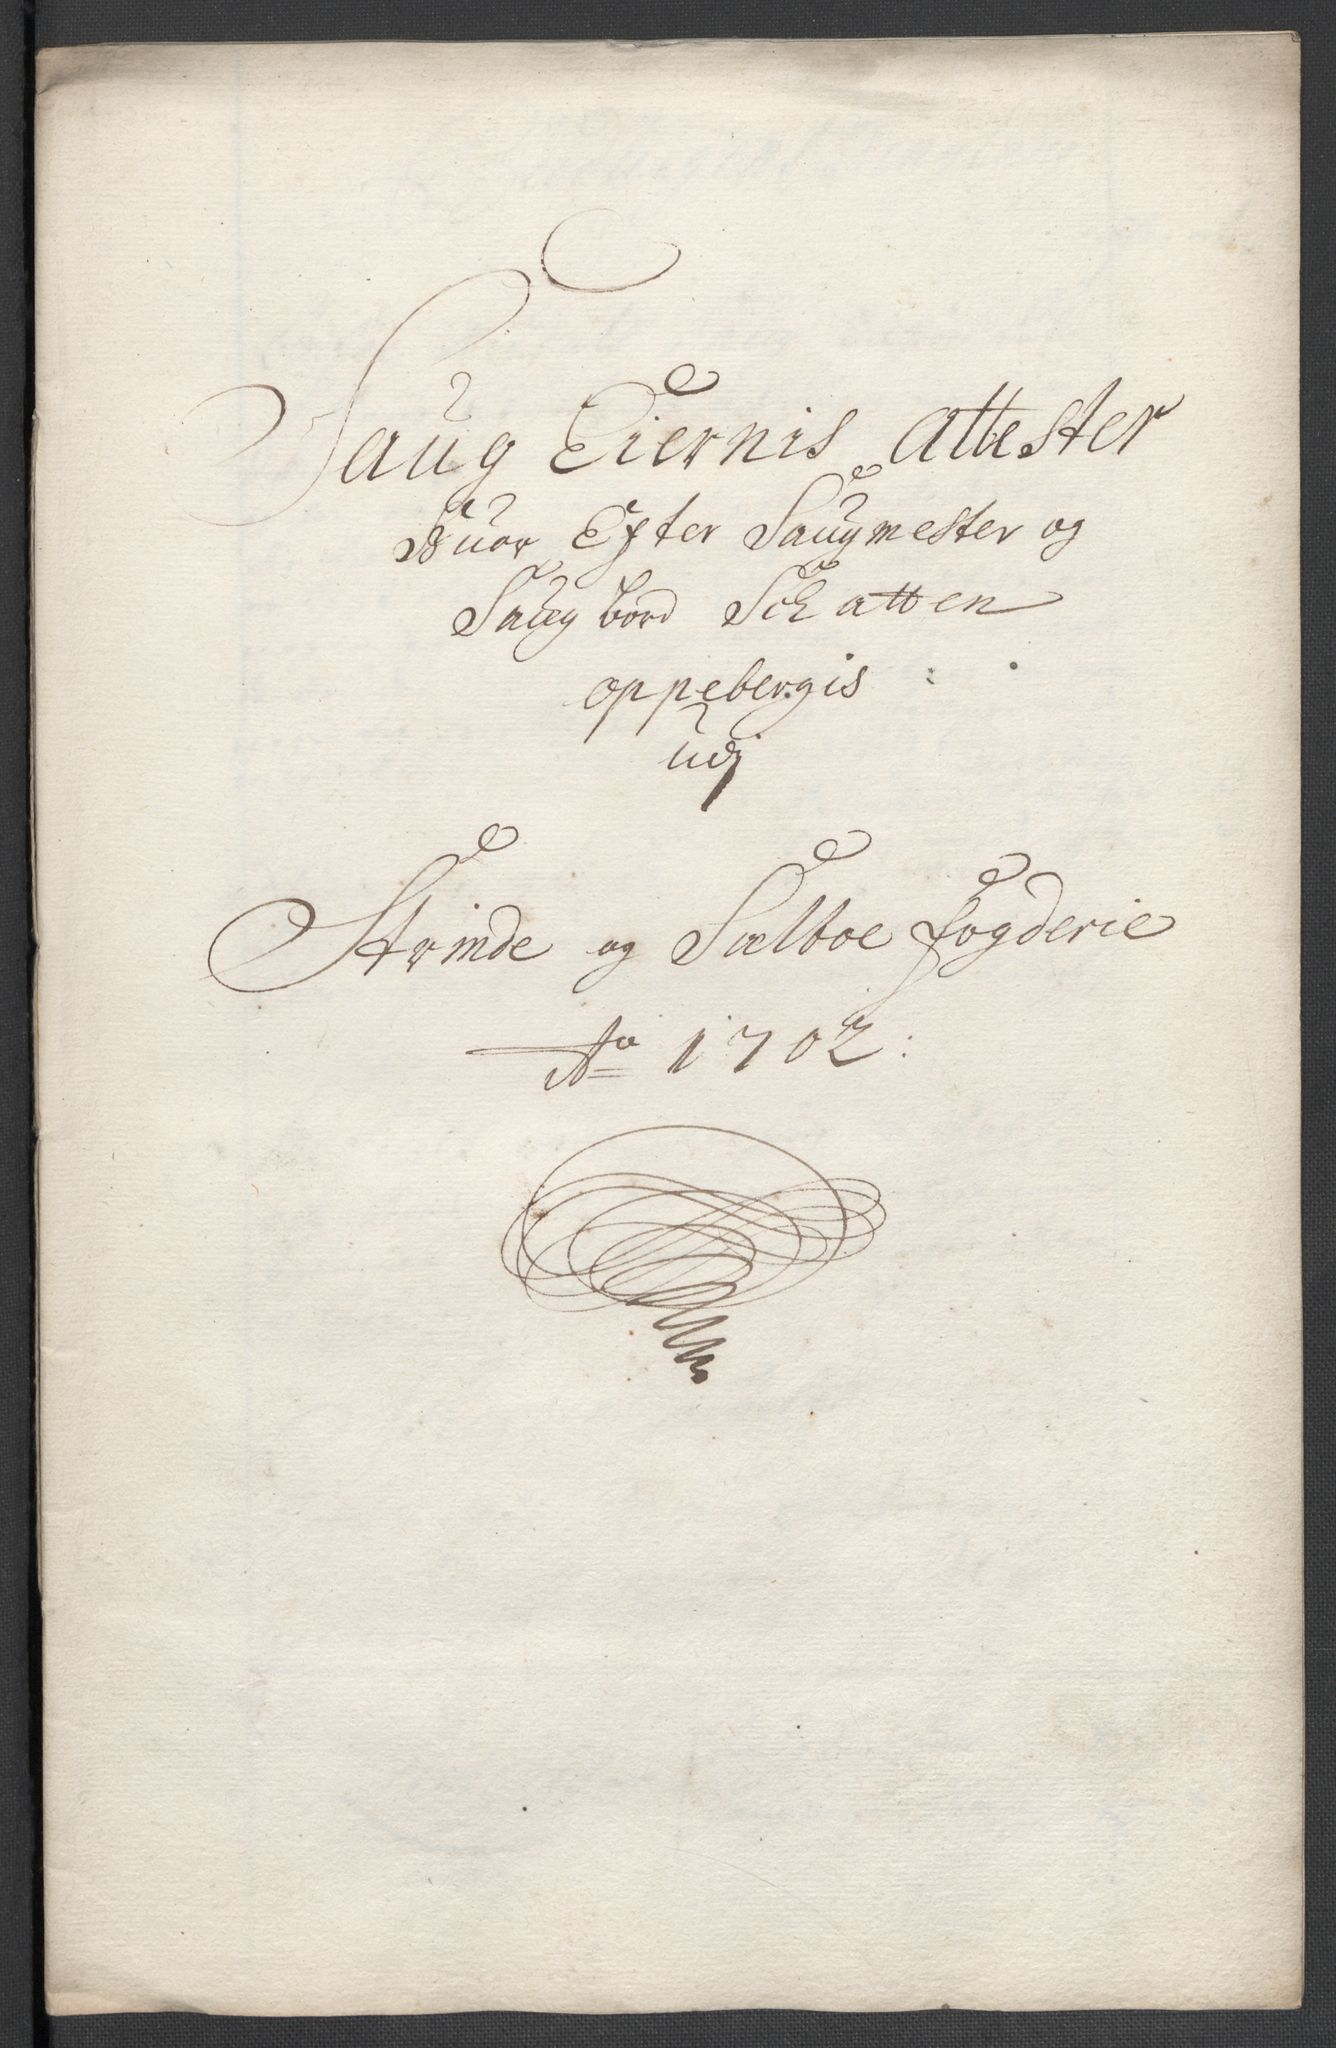 Saug Eiernis attester
Huor Efter Saugmester og
Saug bord Schatten
oppebergis :
udj
Strinde og Sælboe fogderie
Ao 1702: